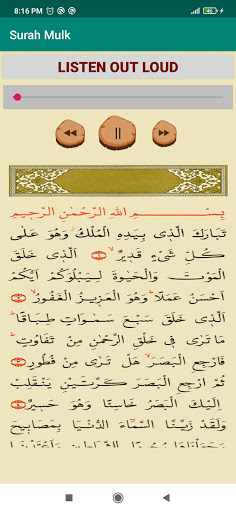 8:16 PM
Surah Mulk
LISTEN OUT LOUD
بِسْمِ اللهِ الرَّحْمٰنِ الرَّحِيْمِ
تَبَارَكَ الَّذِى بِيَدِهِ الْمُلْكُ وَهُوَ عَلٰى
كُلِّ شَىْءٍ قَدِيْرٌ ۝ اَلَّذِى خَلَقَ
الْمَوْتَ وَالْحَيٰوةَ لِيَبْلُوَكُمْ اَيُّكُمْ
اَحْسَنُ عَمَلًا وَهُوَ الْعَزِيْزُ الْغَفُوْرُ ۝
اَلَّذِى خَلَقَ سَبْعَ سَمٰوَاتٍ طِبَاقًا
مَا تَرٰى فِى خَلْقِ الرَّحْمٰنِ مِنْ تَفَاوُتٍ
فَارْجِعِ الْبَصَرَ هَلْ تَرٰى مِنْ فُطُوْرٍ ۝
ثُمَّ ارْجِعِ الْبَصَرَ كَرَّتَيْنِ يَنْقَلِبْ
اِلَيْكَ الْبَصَرُ خَاسِئًا وَهُوَ حَسِيْرٌ ۝
وَلَقَدْ زَيَّنَّا السَّمَاءَ الدُّنْيَا بِمَصَابِيْحَ